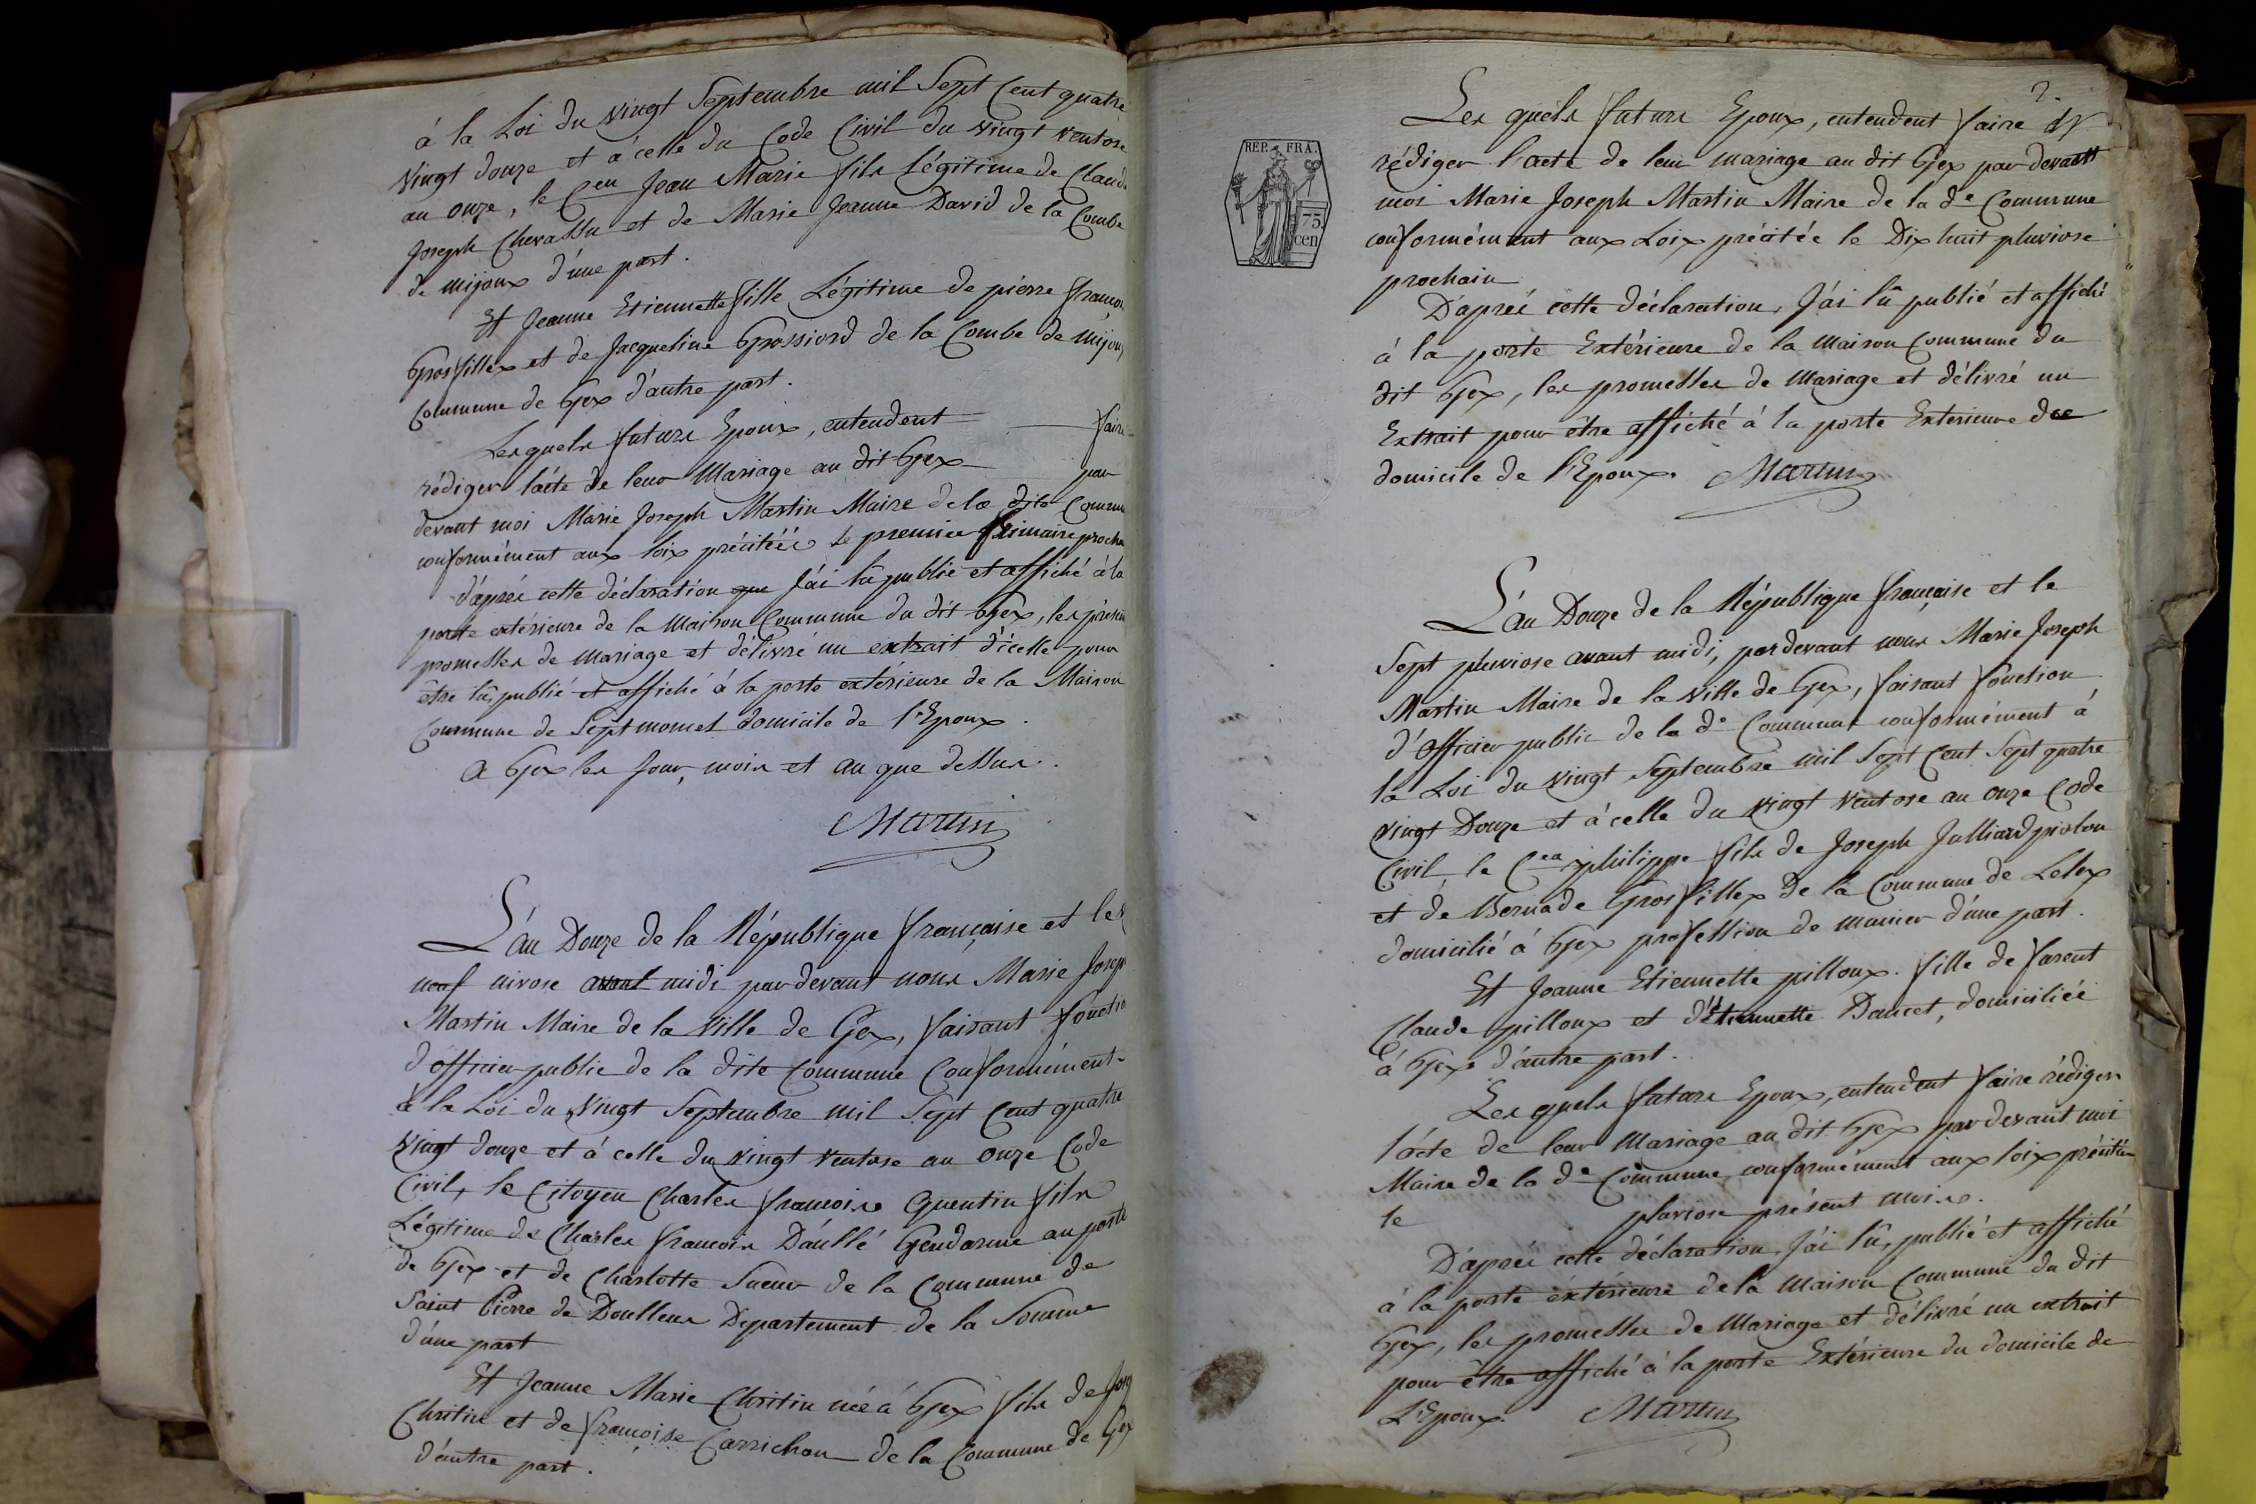 à la Loi du vingt Septembre mil Sept Cent quatre
vingt douze et à celle du Code Civil du vingt ventose
an onze, le Cen Jean Marie fils Légitime de Claude
Joseph Chevassu et de Marie Jeanne David de la Combe
de mijoux d'une part.
Et Jeanne Etiennette fille Légitime de pierre françois
Grosfillex et de Jacqueline Grossiord de la Combe de mijoux
Commune de Gex d'autre part.
Lesquels futurs Epoux, entendent faire
rédiger l'acte de leur Mariage au dit Gex par
devant moi Marie Joseph Martin Maire de la dite Commune
conformément aux loix précitées le premier frimaire prochain
d'après cette déclaration que J'ai lû publié et affiché à la
porte extérieure de la Maison Commune du dit Gex, les présentes
promesses de mariage et délivré un extrait d'icelle pour
être lû, publié et affiché à la porte extérieure de la Maison
Commune de Septmoncel domicile de l'Epoux.
a Gex les Jour, mois et an que dessus.
Martin
L'an Douze de la République française et le
neuf nivose avant midi par devant nous Marie Joseph
Martin Maire de la Ville de Gex, faisant fonction
d'officier public de la dite Commune Conformément
à la Loi du Vingt Septembre mil Sept Cent quatre
Vingt douze et à celle du vingt ventose an onze Code
Civil, le Citoyen Charles françois Quentin fils
Légitime de Charles francois Daullé Gendarme au poste
de Gex et de Charlotte Sueur de la Commune de
Saint Pierre de Doullens Departement de la Somme
d'une part
Et Jeanne Marie Christin née à Gex fils de Joseph
Christin et de françoise Carrichon de la Commune de Gex
d'autre part.
2.
Les quels futurs Epoux, entendent faire
rédiger l'acte de leur mariage au dit Gex par devant
moi Marie Joseph Martin Maire de la de Commune
conformément aux Loix précitée le Dix huit pluviose
prochain
REP. FRA.
75
cen
D'après cette déclaration, J'ai lû publié et affiché
à la porte Extérieure de la Maison Commune du
dit Gex, les promesses de Mariage et délivré un
Extrait pour être affiché à la porte Exterieure du
domicile de l'Epoux. Martin
L'an Douze de la République française et le
Sept pluviose avant midi, par devant nous Marie Joseph
Martin Maire de la Ville de Gex, faisant fonction
d'officier public de la de Commune conformément à
la Loi du vingt Septembre mil Sept Cent Sept quatre
vingt Douze et à celle du vingt ventose an onze Code
Civil, le Cen philippe fils de Joseph Julliard piolon
et de Bernade Grosfillex de la Commune de Lelex
domicilié à Gex profession de manier d'une part.
Et Jeanne Etiennette pilloux fille de farent
Claude pilloux et d'Etiennette Dancet, domiciliée
à Gex d'autre part.
Les quels futurs Epoux, entendent faire rédiger
l'acte de leur Mariage au dit Gex par devant moi
Maire de la de Commune, conformément aux loix précitées
le pluviose présent mois.
D'après cette déclaration, J'ai lû, publié et affiché
à la porte éxtérieure de la Maison Commune du dit
Gex, les promesses de Mariage et délivré un extrait
pour être affiché à la porte Extérieure du domicile de
L'Epoux. Martin